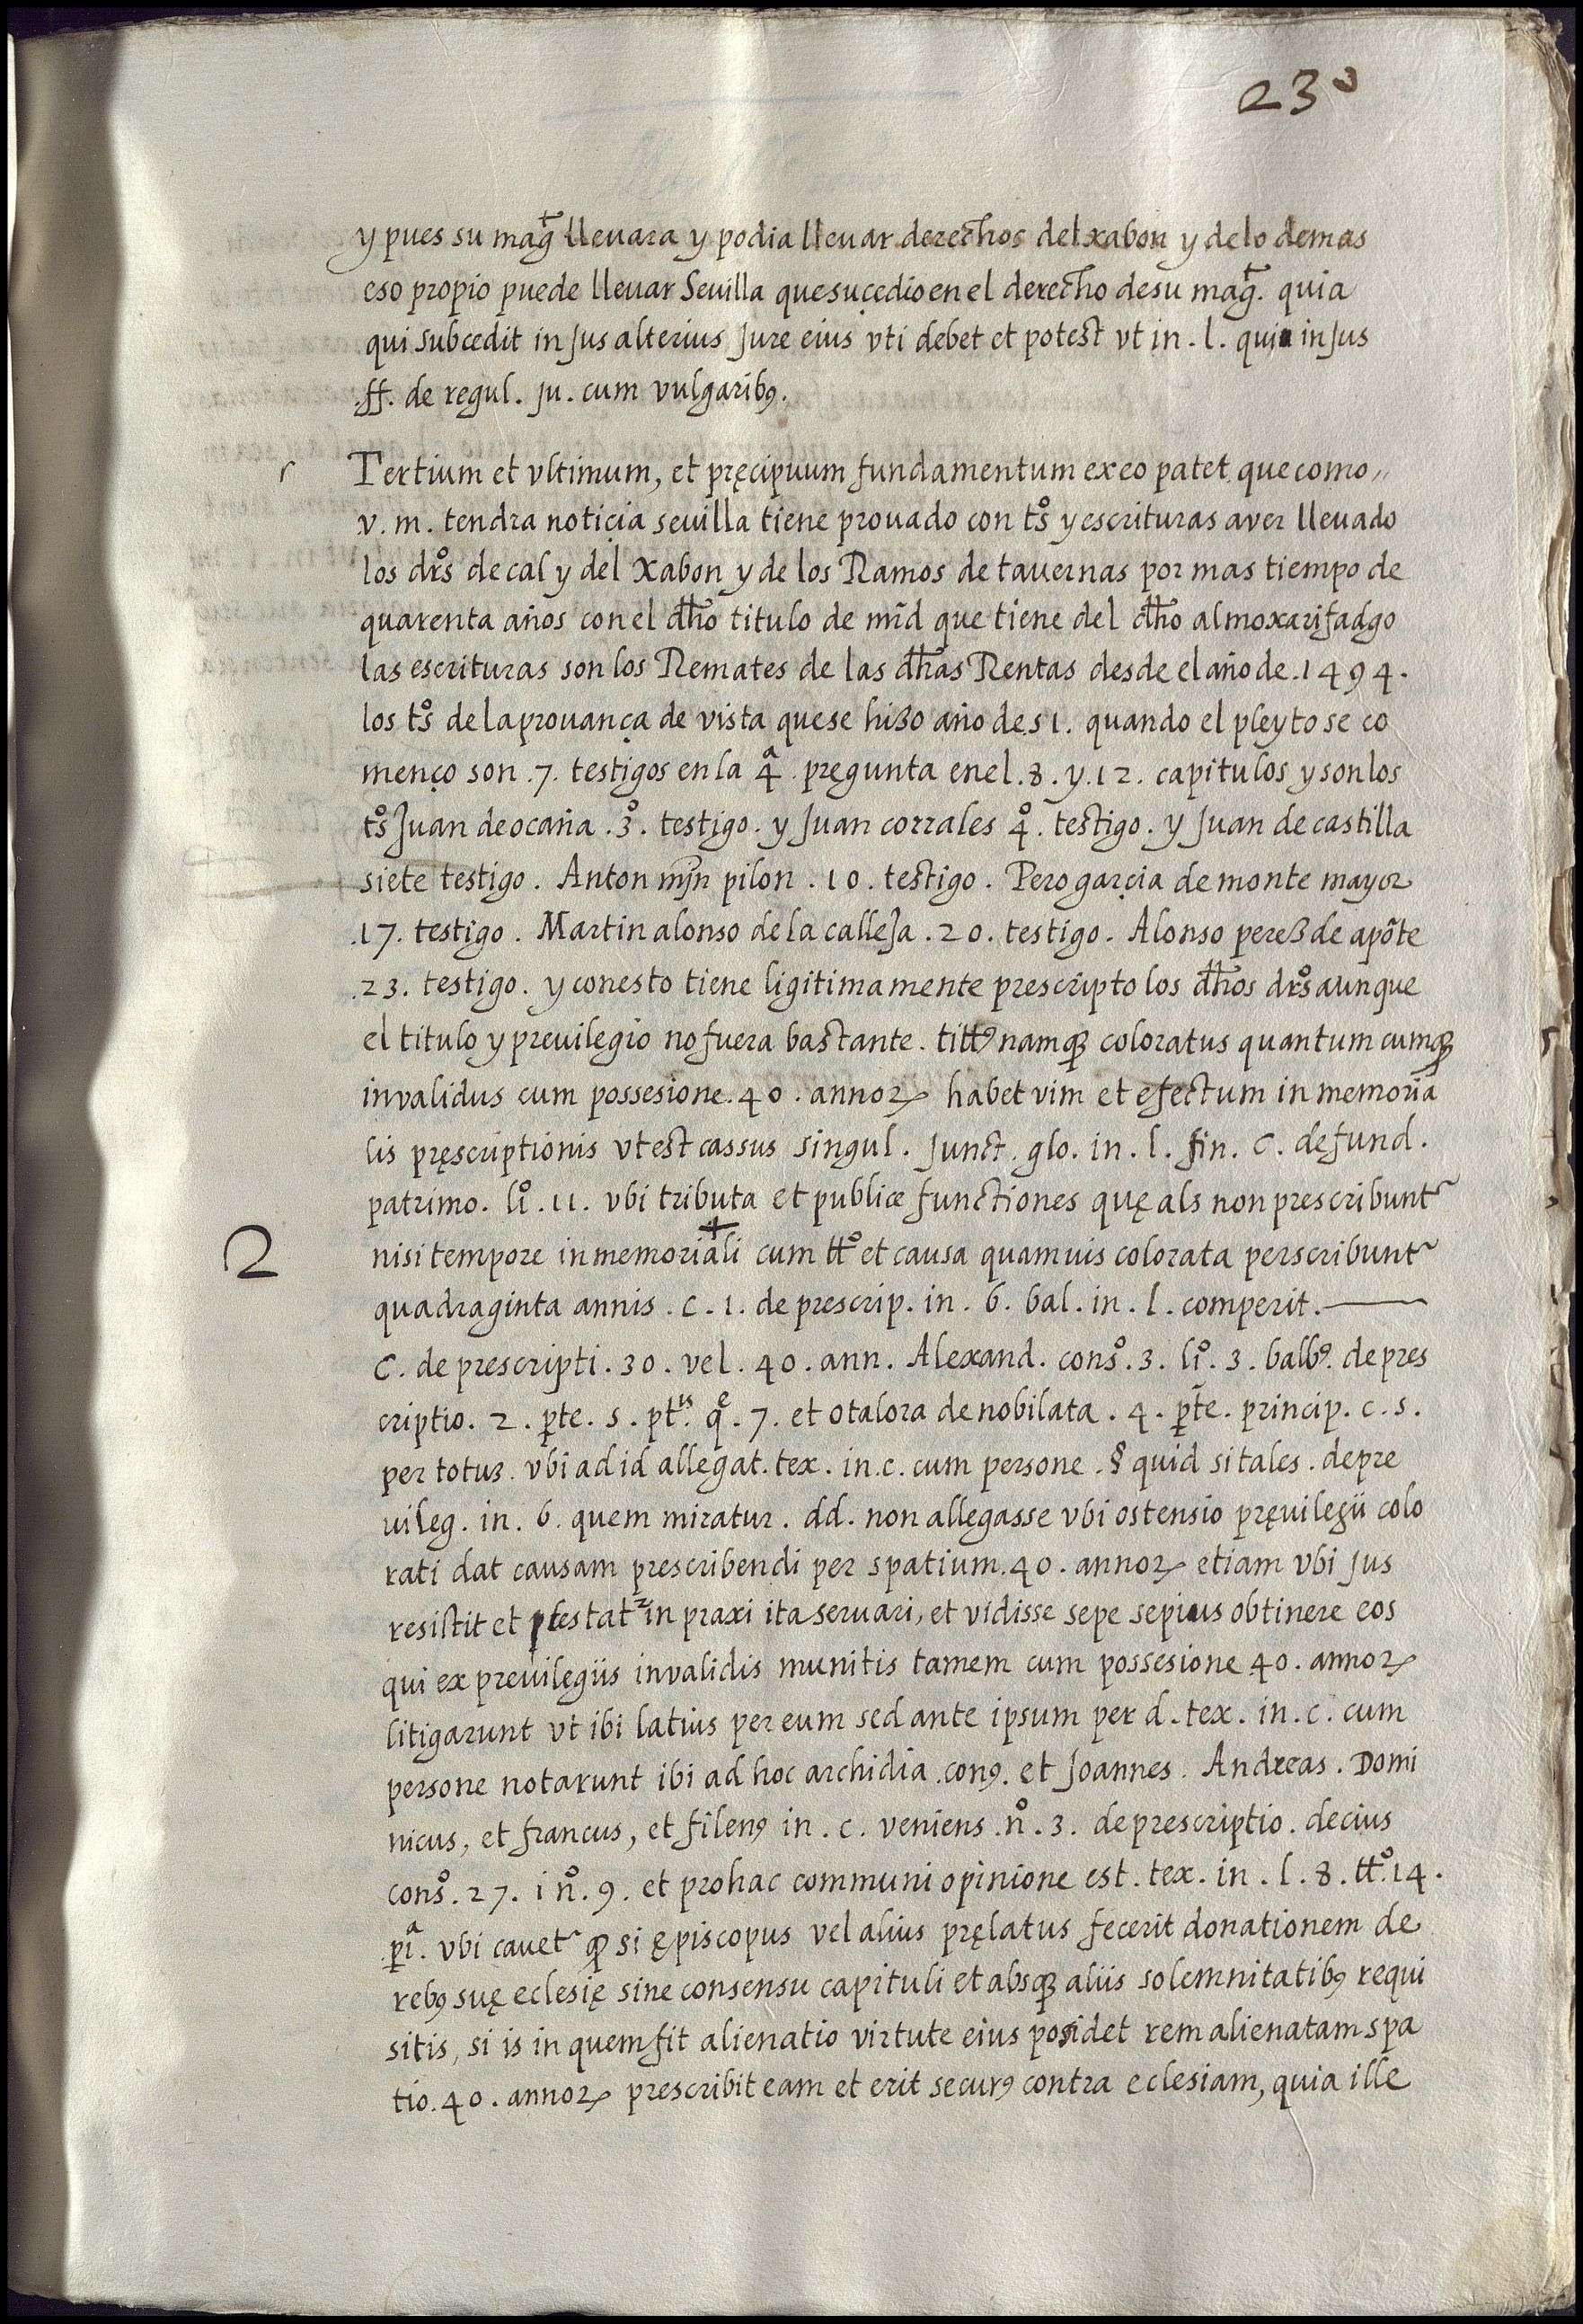 230
y pues su magt̃ lleuara y podia lleuar derechos del xabon y de lo demas
eso propio puede lleuar Seuilla que suçedio en el derecho de su magt̃. quia
qui subcedit in Jus alterius Jure eius vti debet et potest vt in . l . quia in Jus
.ff. de regul . ju . cum vulgaribꝰ.
Tertium et vltimum, et pręcipuum fundamentum ex eo patet que como //
v . m . tendra notiçia seuilla tiene prouado con tºs y escrituras aver lleuado
los drºs de cal y del xabon y de los Ramos de tauernas por mas tiempo de
quarenta años con el dho titulo de mrd que tiene del dho almoxarifadgo
las escrituras son los Remates de las dhas Rentas desde el año de . 1494 .
los tºs de la prouança de vista que se hizo año de 51 . quando el pleyto se co
menço son . 7 . testigos en la 4ª . pregunta en el . 8 . y . 12 . capitulos y son los
tºs Juan de ocaña . 3º . testigo . y Juan corrales 4º . testigo . y Juan de castilla
siete testigo . Anton mȷ̃n pilon . 10 . testigo . Pero garçia de monte mayor
. 17 . testigo . Martin alonso de la calleJa . 20 . testigo . Alonso perez de apõte
. 23 . testigo . y con esto tiene ligitimamente prescripto los dhos drºs aunque
el titulo y preuilegio no fuera bastante . tittꝰ namqȝ coloratus quantum cumqȝ
invalidus cum possesione . 40 . annoꝝ habet vim et efectum in memoria
lis pręscriptionis vt est cassus singul . Junct . glo . in . l . fin . C . de fund .
patrimo . liº . 11 . vbi tributa et publice functiones quę als non prescribuntr
nisi tempore in memoriali cum ttº et causa quamuis colorata perscribuntr
quadraginta annis . c . 1 . de prescrip . in . 6 . bal . in . l . comperit .
C . de prescripti . 30 . vel . 40 . ann . Alexand . consº . 3 . liº . 3 . balbꝰ . de pres
criptio . 2 . ꝑte . 5 . ptis . qe . 7 . et otalora de nobilata . 4 . ꝑte . princip . c . 5 .
per totuz . vbi ad id allegat . tex . in . c . cum persone . § quid si tales . de pre
uileg . in . 6 . quem miratur . dd . non allegasse vbi ostensio pręuilegii colo
rati dat causam prescribendi per spatium . 40 . annoꝝ etiam vbi Jus
resistit et testatr in praxi ita seruari, et vidisse sepe sepius obtinere eos
qui ex preuilegiis invalidis munitis tamem cum possesione 40 . annoꝝ
litigarunt vt ibi latius per eum sed ante ipsum per d . tex . in . c . cum
persone notarunt ibi ad hoc archidia . conꝰ . et Joannes . Andreas . Domi
nicus, et francus, et filenꝰ in . c . veniens . nº . 3 . de prescriptio . decius
consº . 27 . i nº . 9 . et pro hac communi opinione est . tex . in . l . 8 . ttº . 14 .
. piª . vbi cauetr ꝙ si ępiscopus vel alius pręlatus fecerit donationem de
rebꝰ suę eclesię sine consensu capituli et absqȝ aliis solemnitatibꝰ requi
sitis, si is in quem fit alienatio virtute eius posidet rem alienatam spa
tio . 40 . annoꝝ prescribit eam et erit securꝰ contra eclesiam, quia ille